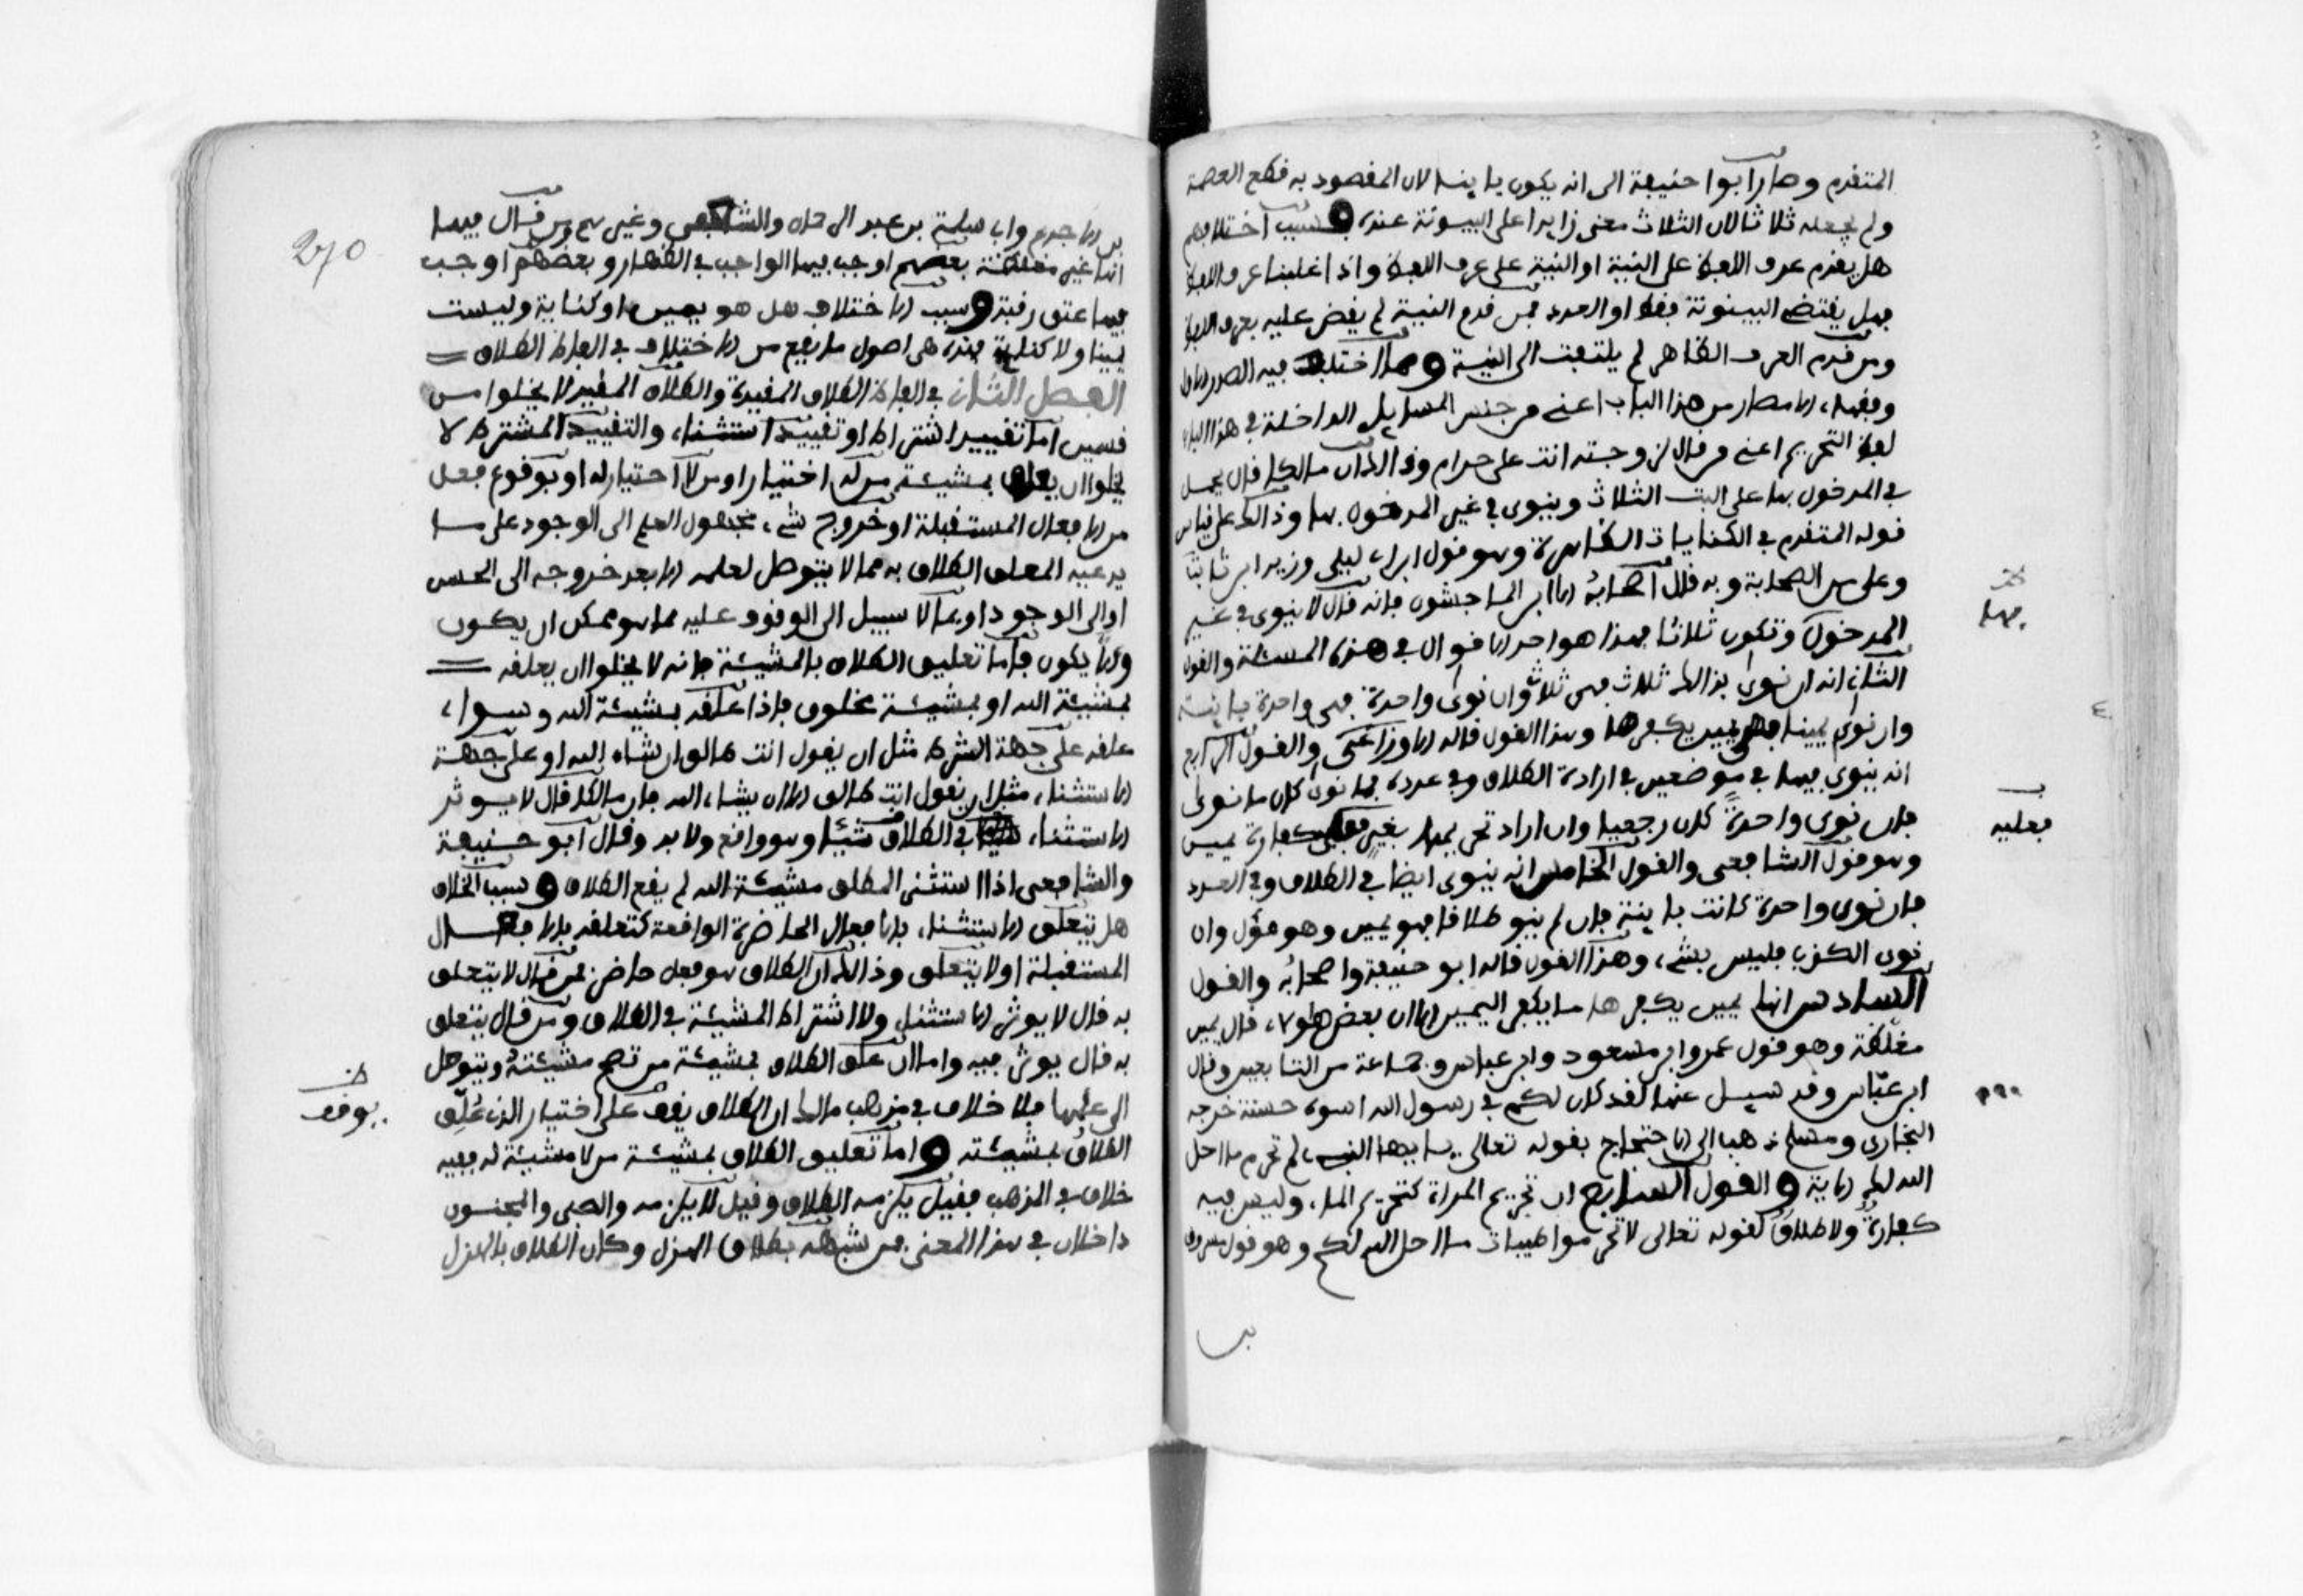 المتقدم وصار ابوا حنيفة الى انه يكون باينا لان المقصود به قطع العصمة
ولم يجعله ثلاثا لان الثلاث معنى زايدا على البينونة عنده وسبب اختلافهم
هل يقدم عرف اللفظ على النية او النية على عرف اللفظ واذا غلبنا عرف اللفظ
فهل يقتضي البينونة فقط او العدد فمن قدم النية لم يقض عليه بعرف اللفظ
ومن قدم العرف الظاهر لم يلتفت الى النية ومما اختلف فيه الصدر الاول
وفقهاء الامصار من هذا الباب اعني من جنس المسايل الداخلة في هذا الباب
لفظ التحريم اعني من قال لزوجته انت علي حرام وذالك ان مالكا قال يحمل
في المدخول بها على البت الثلاث وينوى في غير المدخول بها وذالك على قياس
قوله المتقدم في الكنايات الظاهرة وهو قول ابن ابي ليلى وزيد ابن ثابت
وعلي من الصحابة وبه قال اصحابه الا ابن الماجشون فانه قال لا ينوى في غير
المدخول وتكون ثلاثا فهذا هو احد الاقوال في هذه المسئلة والقول
الثاني انه ان نوى بذالك ثلاث فهي ثلاث وان نوى واحدة فهي واحدة باينة
وان نوى يمينا فهي يمين يكفرها وهذا القول قاله الاوزاعي والقول الرابع
انه ينوى فيها في موضعين في ارادة الطلاق وفي عدده فما نوى كان ما نوى
فان نوى واحدة كان رجعيا وان اراد تحريمها بغير فعلى كفارة يمين
وهو قول الشافعي والقول الخامس انه ينوى ايضا في الطلاق وفي العدد
فان نوى واحدة كانت باينة فان لم ينو طلاقا فهو يمين وهو مؤل وان
نوى الكذب فليس بشيء وهذا القول قاله ابو حنيفة واصحابه والقول
السادس انها يمين يكفرها ما يكفر اليمين الا ان بعض هؤلاء قال يمين
مغلظة وهو قول عمر وابن مسعود وابن عباس وجماعة من التابعين وقال
ابن عباس وقد سيل عنها لقد كان لكم في رسول الله اسوة حسنة خرجه
البخاري ومسلم ذهب الى الاحتجاج بقوله تعالى يايها النبي لم تحرم ما احل
الله لك الاية والقول السابع ان تحريم المراة كتحريم الماء وليس فيه
كفارة ولا طلاق لقوله تعالى لا تحرموا طيبات ما احل الله لكم وهو قول مسروق
فيها
فعليه
بن الاجدع وابي سلمة بن عبد الرحمان والشعبي وغيرهم ومن قال فيها
انها غير مغلظة بعضهم اوجب فيها الواجب في الظهار وبعضهم اوجب
فيها عتق رقبة وسبب الاختلاف هل هو يمين او كناية وليست
يمينا ولا كناية فهذه هي اصول ما يقع من الاختلاف في الفاظ الطلاق
الفصل الثاني في الفاظ الطلاق المقيدة والطلاق المقيد لا يخلوا من
قسمين اما تقييد اشتراط او تقييد استثناء والتقييد المشترط لا
يخلوا ان يعلق بمشيئة من له اختيار او من لا اختيار له او بوقوع فعل
من الافعال المستقبلة او خروج شيء مجهول العلم الى الوجود على ما
يدعيه المعلق الطلاق به مما لا يتوصل لعلمه الا بعد خروجه الى الحس
او الى الوجود او بما لا سبيل الى الوقوف عليه مما هو ممكن ان يكون
والا يكون فاما تعليق الطلاق بالمشيئة فانه لا يخلوا ان يعلقه
بمشيئة الله او بمشيئة مخلوق فاذا علقه بمشيئة الله وسواء
علقه على جهة الشرط مثل ان يقول انت طالق ان شاء الله او على جهة
الاستثناء مثل ان يقول انت طالق الا ان يشاء الله فان مالكا قال لا يوثر
الاستثناء في الطلاق شيئا وهو واقع ولا بد وقال ابو حنيفة
والشافعي اذا استثنى المطلق مشيئة الله لم يقع الطلاق وسبب الخلاف
هل يتعلق الاستثناء بالافعال الحاضرة الواقعة كتعلقه بالافعال
المستقبلة او لا يتعلق وذالك ان الطلاق هو فعل حاضر فمن قال لا يتعلق
به قال لا يوثر الاستثناء ولا اشتراط المشيئة في الطلاق ومن قال يتعلق
به قال يوثر فيه واما ان علق الطلاق بمشيئة من تصح مشيئته ويتوصل
الى علمها فلا خلاف في مذهب مالك ان الطلاق يقف على اختيار الذي علق
الطلاق بمشيئته واما تعليق الطلاق بمشيئة من لا مشيئة له ففيه
خلاف في المذهب فقيل يلزمه الطلاق وقيل لا يلزمه والصبي والمجنون
داخلان في هذا المعنى فمن شبهه بطلاق الهزل وكان الطلاق بالهزل
يوقف
270